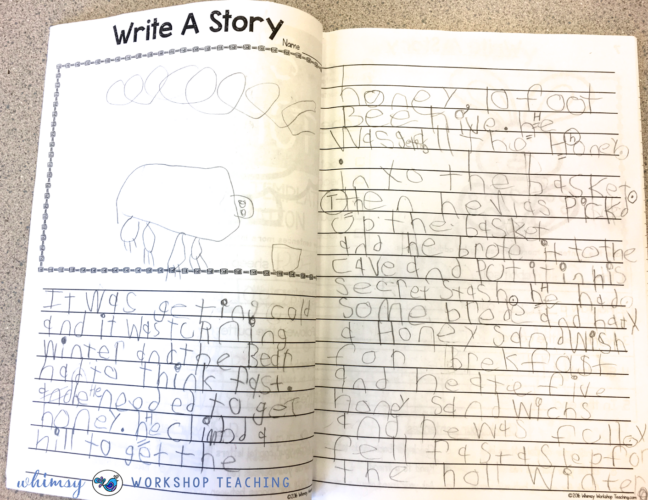 Write A Story
Name
It was geting cold
and it was turning
winter and the Bear
had to think fast.
and he needed to get
honey. he climbd a
hill to get the
honey, 10 foot
Bee hive. he
was all the Honey
in to the basket.
Then he was pickd
up the basket
and he brote it to the
cave and put it in his
secret stash. he had
some brade and hady
a Honey sandwish
for brekfast
and he ate five
hony sandwichs
and he was fulley
fell fast alep for
the hol winter
whimsy WORKSHOP TEACHING